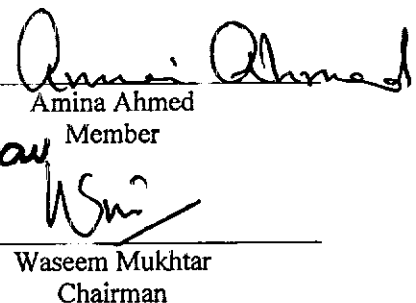 Amina Ahmed
Amina Ahmed
Member
Waseem Mukhtar
Chairman